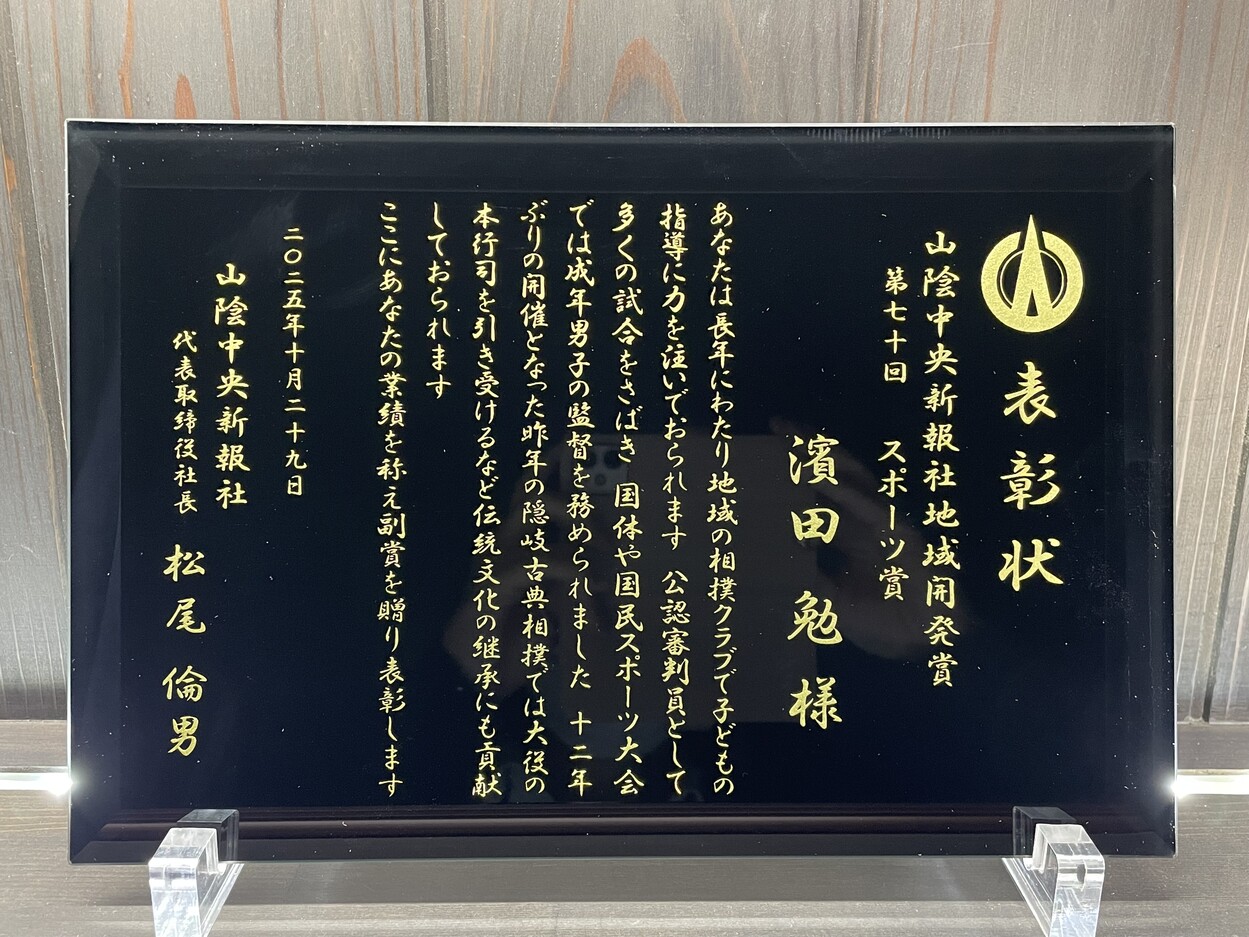 表彰状
山陰中央新報社地域開発賞
第七十回 スポーツ賞
濱田勉様
あなたは長年にわたり地域の相撲クラブで子どもの
指導に力を注いでおられます 公認審判員として
多くの試合をさばき 国体や国民スポーツ大会
では成年男子の監督を務められました 十二年
ぶりの開催となった昨年の隠岐古典相撲では大役の
本行司を引き受けるなど伝統文化の継承にも貢献
しておられます
ここにあなたの業績を称え副賞を贈り表彰します
二〇二五年十月二十九日
山陰中央新報社
代表取締役社長 松尾倫男